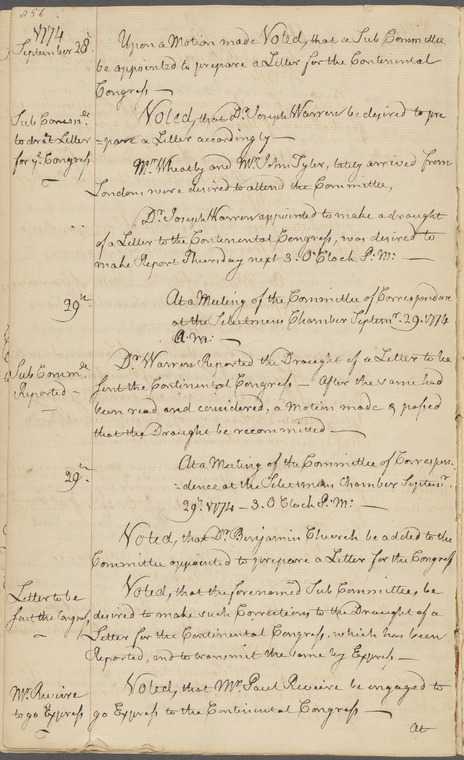 856
1774
September 28th
Upon a Motion made Voted, that a Sub Committee
be appointed to prepare a Letter for the Continental
Congress —
Sub Commee
to draft Letter
for ye Congress
Voted, that Dr. Joseph Warren be desired to pre
=pare a Letter accordingly —
Mr. Wheatly and Mr. John Tyler, lately arrived from
London, were desired to attend the Committee,
Dr. Joseph Warren appointed to make a draught
of a Letter to the Continental Congress, was desired to
make Report Thursday next 3. O'Clock P: M: —
29th
At a Meeting of the Committee of Correspondence
at the Selectmens Chamber Septemr. 29. 1774
A.M: —
Sub Commee
Reported —
Dr. Warren Reported the Draught of a Letter to be
sent the Continental Congress — After the same had
been read and considered, a Motion made & passed
that the Draught be recommitted —
29th
At a Meeting of the Committee of Correspon-
=dence at the Selectmens Chamber Septemr.
29th 1774 — 3. O'Clock P: M: —
Voted, that Dr. Benjamin Church be added to the
Committee appointed to prepare a Letter for the Congress
Letter to be
sent the Congress
Voted, that the forenamed Sub Committee, be
desired to make such Corrections to the Draught of a
Letter for the Continental Congress, which has been
Reported, and to transmit the same by Express —
Mr. Reveire
to go Express
Voted, that Mr. Paul Reveire be engaged to
go Express to the Continental Congress —
At